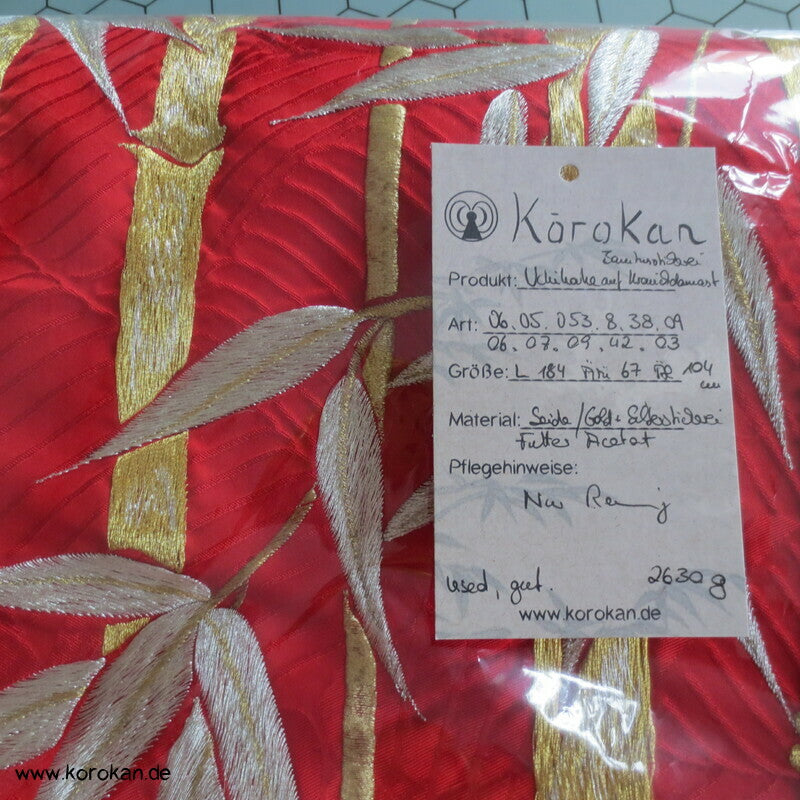 Kōrokan
Produkt: Uchikake auf Kraniddamast
Art: 06.05.053.8.38.09
06.07.09.42.03
Größe: L 184 Ärm 67 RB 104
cm
Material: Seide/Gold+Silberstickerei
Futter Acetat
Pflegehinweise:
Nur
used, gut. 2630 g
www.korokan.de
www.korokan.de